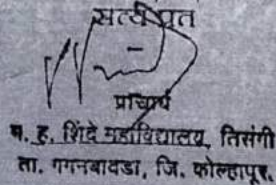 सत्यप्रत
प्राचार्य
म. ह. शिंदे महाविद्यालय, तिसंगी
ता. गगनबावडा, जि. कोल्हापूर.